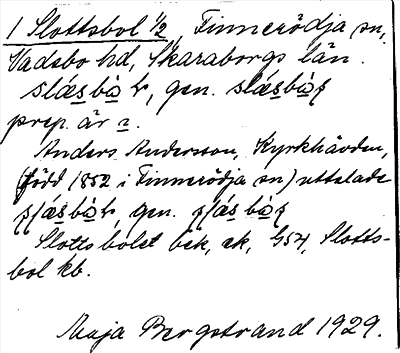 1 Slottsbol 1/2, Finnerödja sn,
Vadsbo hd, Skaraborgs län.
slás bò l, gen. slás bò s
prep. är a.
Anders Andersson, Kyrkhävden,
(född 1852 i Finnerödja sn) uttalade
slás bò l, gen. slás bò s
Slottsbolet bek, ek, G54, Slotts-
bol kb.
Maja Bergstrand 1929.